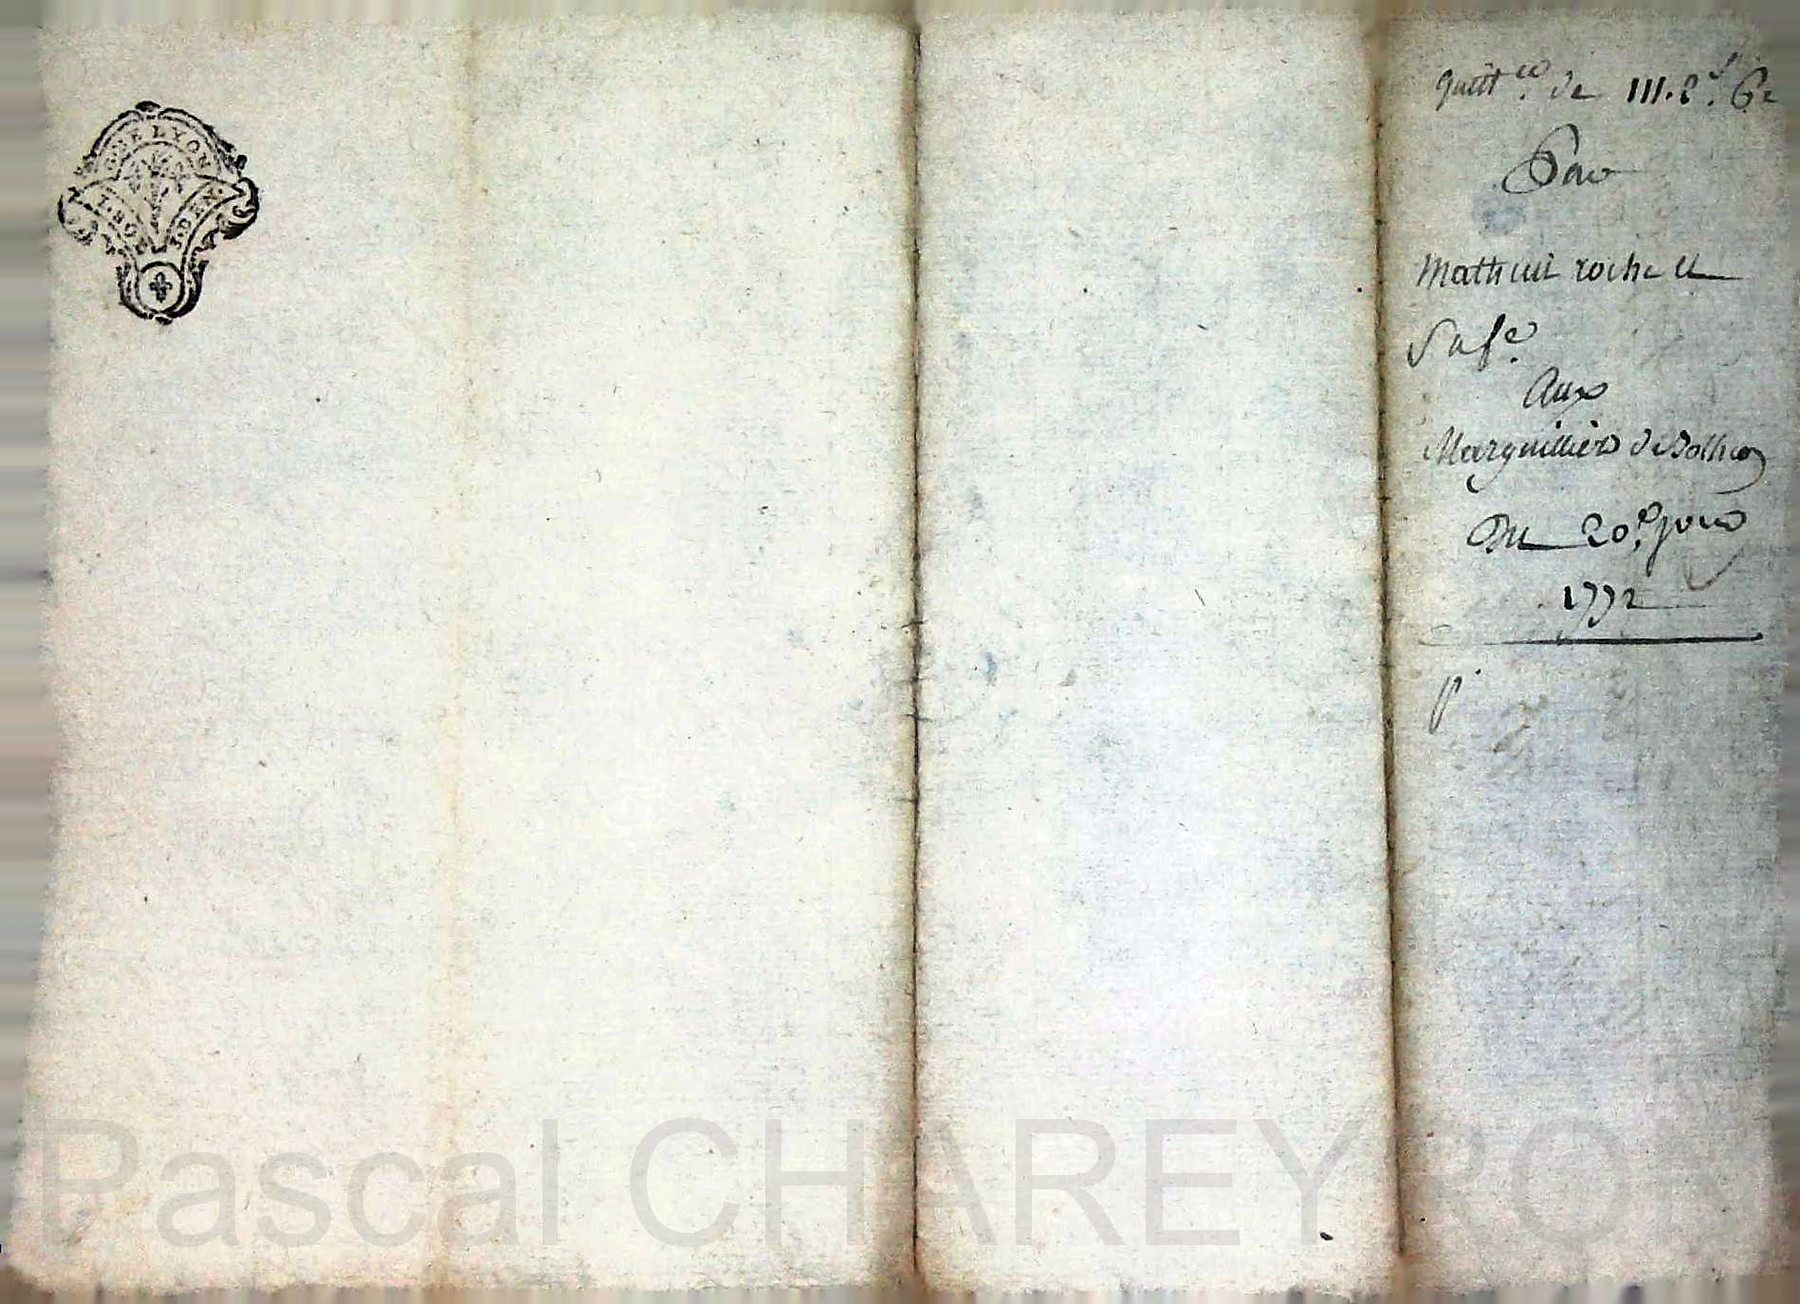 DE LYON
quitt.ce de 111.l s. 6d
Par
Mathieu roche et
Sa f.e
Aux
Marguilliers de
Du 20.e juin
1772
Pascal CHAREYRON